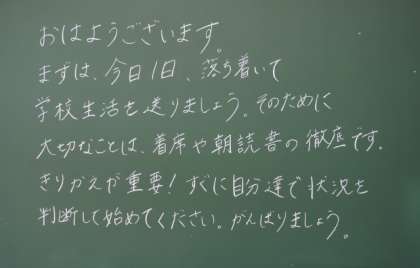 おはようございます。
まずは、今日1日、落ち着いて
学校生活を送りましょう。そのために
大切なことは、着席や朝読書の徹底です。
きりかえが重要!すぐに自分達で状況を
判断して始めてください。がんばりましょう。